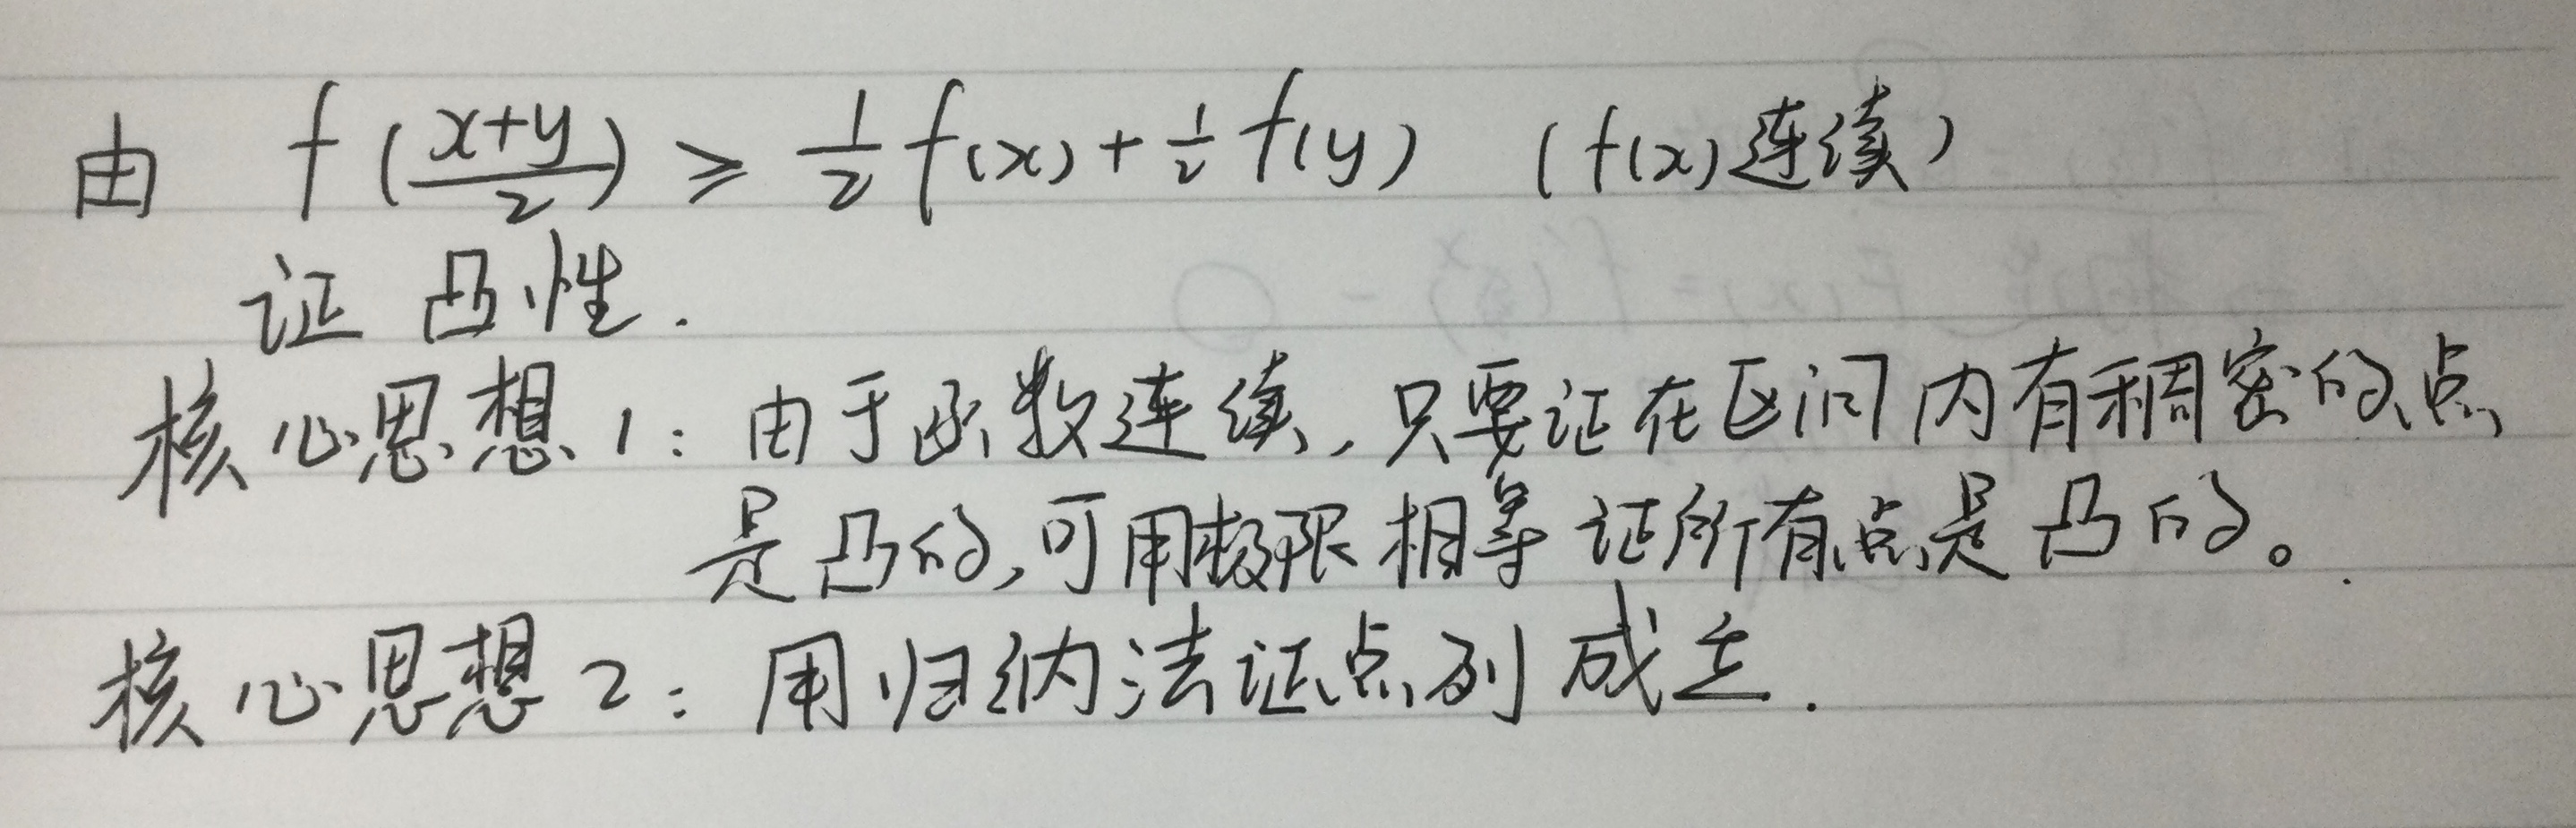 由 f(\frac{x+y}{2}) ≥ \frac{1}{2}f(x)+\frac{1}{2}f(y) (f(x)连续)
证凸性.
核心思想1:由于函数连续,只要证在区间内有稠密的点
是凸的,可用极限相等证所有点是凸的。
核心思想2:用归纳法证点列成立.